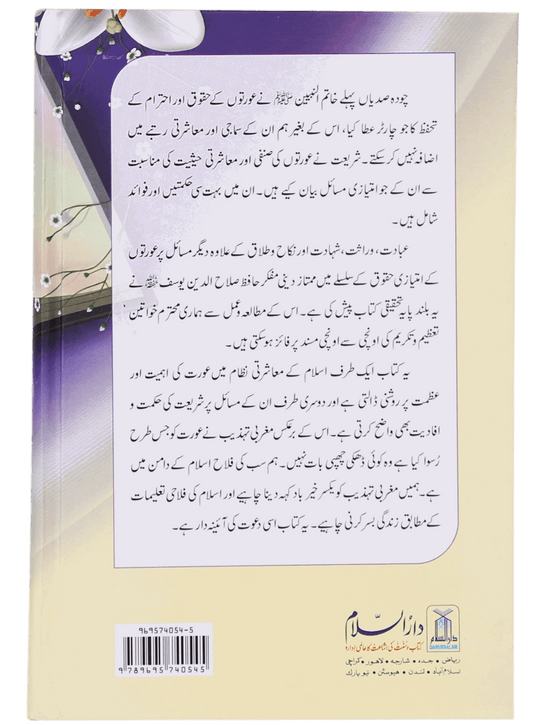 چودہ صدیاں پہلے خاتم النبیین ﷺ نے عورتوں کے حقوق اور احترام کے
تحفظ کا جو چارٹر عطا کیا، اس کے بغیر ہم ان کے سماجی اور معاشرتی رتبے میں
اضافہ نہیں کرسکتے۔ شریعت نے عورتوں کی صنفی اور معاشرتی حیثیت کی مناسبت
سے ان کے جو امتیازی مسائل بیان کیے ہیں۔ ان میں بہت سی حکمتیں اور فوائد
شامل ہیں۔
عبادت، وراثت، شہادت اور نکاح و طلاق کے علاوہ دیگر مسائل پر عورتوں
کے امتیازی حقوق کے سلسلے میں ممتاز دینی مفکر حافظ صلاح الدین یوسف ﷾ نے
یہ بلند پایہ تحقیقی کتاب پیش کی ہے۔ اس کے مطالعہ و عمل سے ہماری محترم خواتین
تعظیم و تکریم کی اونچی سے اونچی مسند پر فائز ہوسکتی ہیں۔
یہ کتاب ایک طرف اسلام کے معاشرتی نظام میں عورت کی اہمیت اور
عظمت پر روشنی ڈالتی ہے اور دوسری طرف ان کے مسائل پر شریعت کی حکمت و
افادیت بھی واضح کرتی ہے۔ اس کے برعکس مغربی تہذیب نے عورت کو جس طرح
رُسوا کیا ہے وہ کوئی ڈھکی چھپی بات نہیں۔ ہم سب کی فلاح اسلام کے دامن میں
ہے۔ ہمیں مغربی تہذیب کو یکسر خیر باد کہہ دینا چاہیے اور اسلام کی فلاحی تعلیمات
کے مطابق زندگی بسر کرنی چاہیے۔ یہ کتاب اسی دعوت کی آئینہ دار ہے۔
969574054-5
9 789695 740545
دارُالسلام
کتاب و سنت کی اشاعت کا عالمی ادارہ
ریاض • جدہ • شارجہ • لاہور • کراچی
اسلام آباد • لندن • ہیوسٹن • نیو یارک
دارالسلام
DARUSSALAM